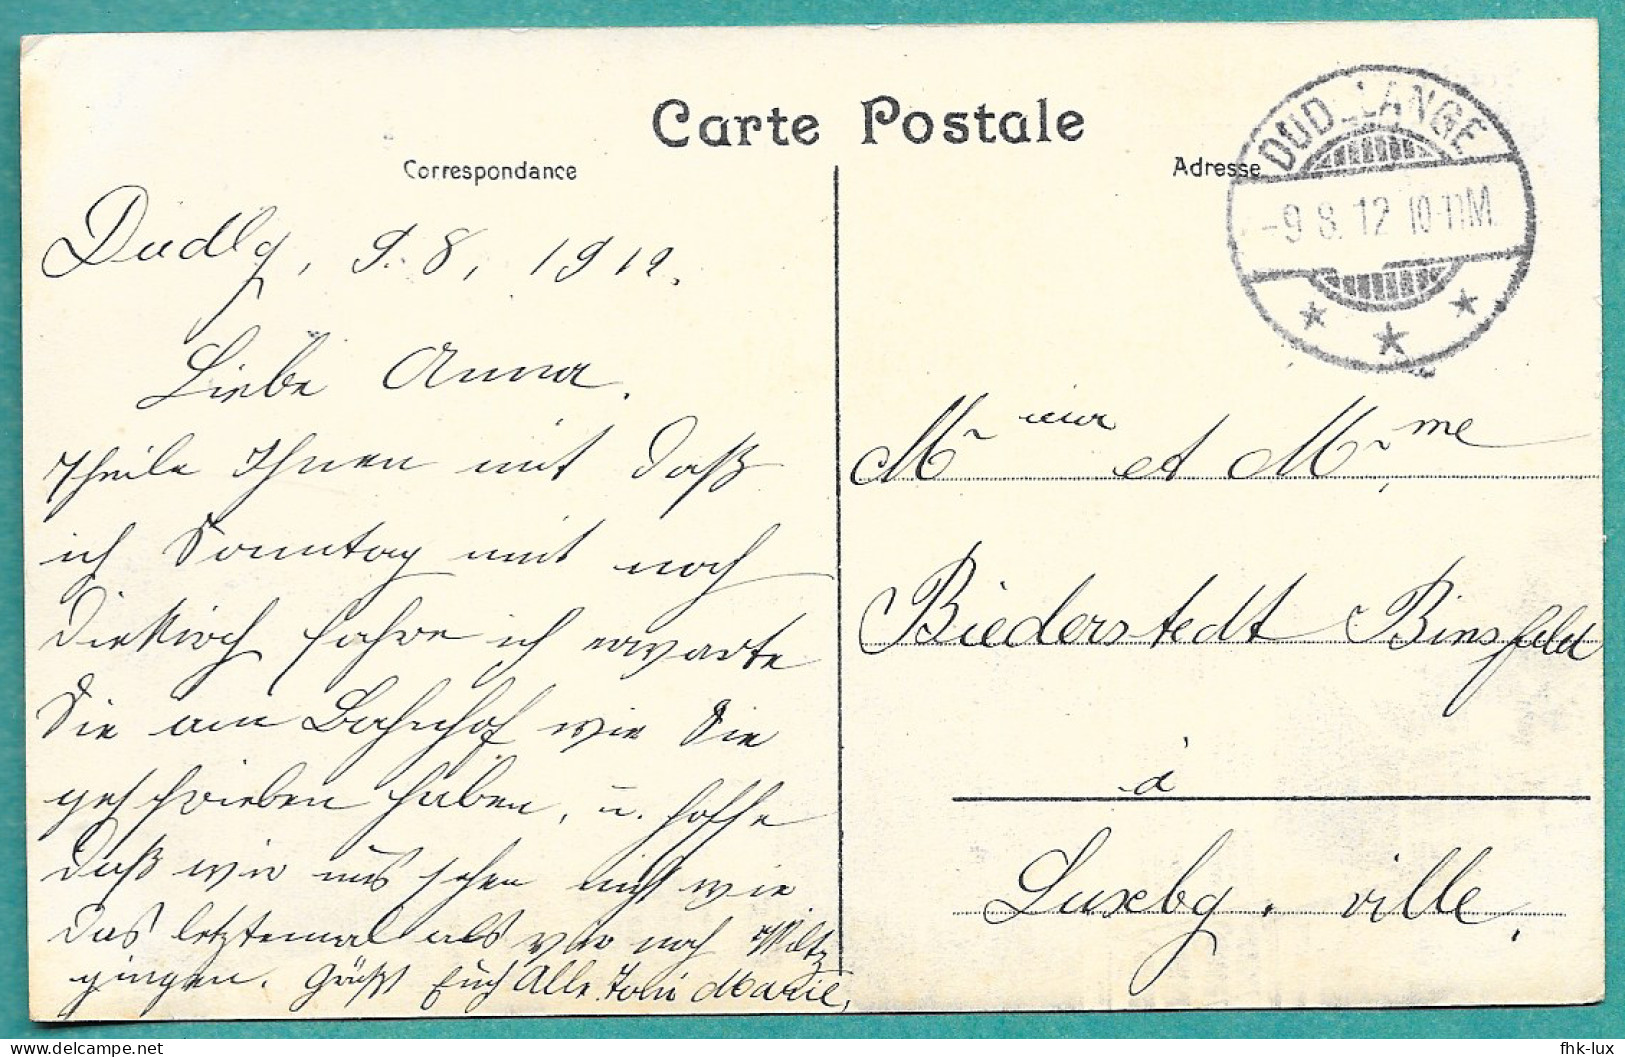 Carte Postale
Correspondance
Adresse
DUDELANGE
-9.8.12 10-11M.
Dudlg, 9.8.1912.
Liebe Anna.
Theile Ihnen mit daß
ich Sonntag mit nach
Diekirch fahre ich erwarte
Sie am Bahnhof wie Sie
geschrieben haben, u. hoffe
daß wir uns sehen nicht wie
das letztemal als wir nach Wiltz
gingen. Grüßt Euch Alle Marie,
Mr ieur et Mr, me
Biederstedt Binsfeld
à
Luxbg. ville,
delcampe.net
fhk-lux